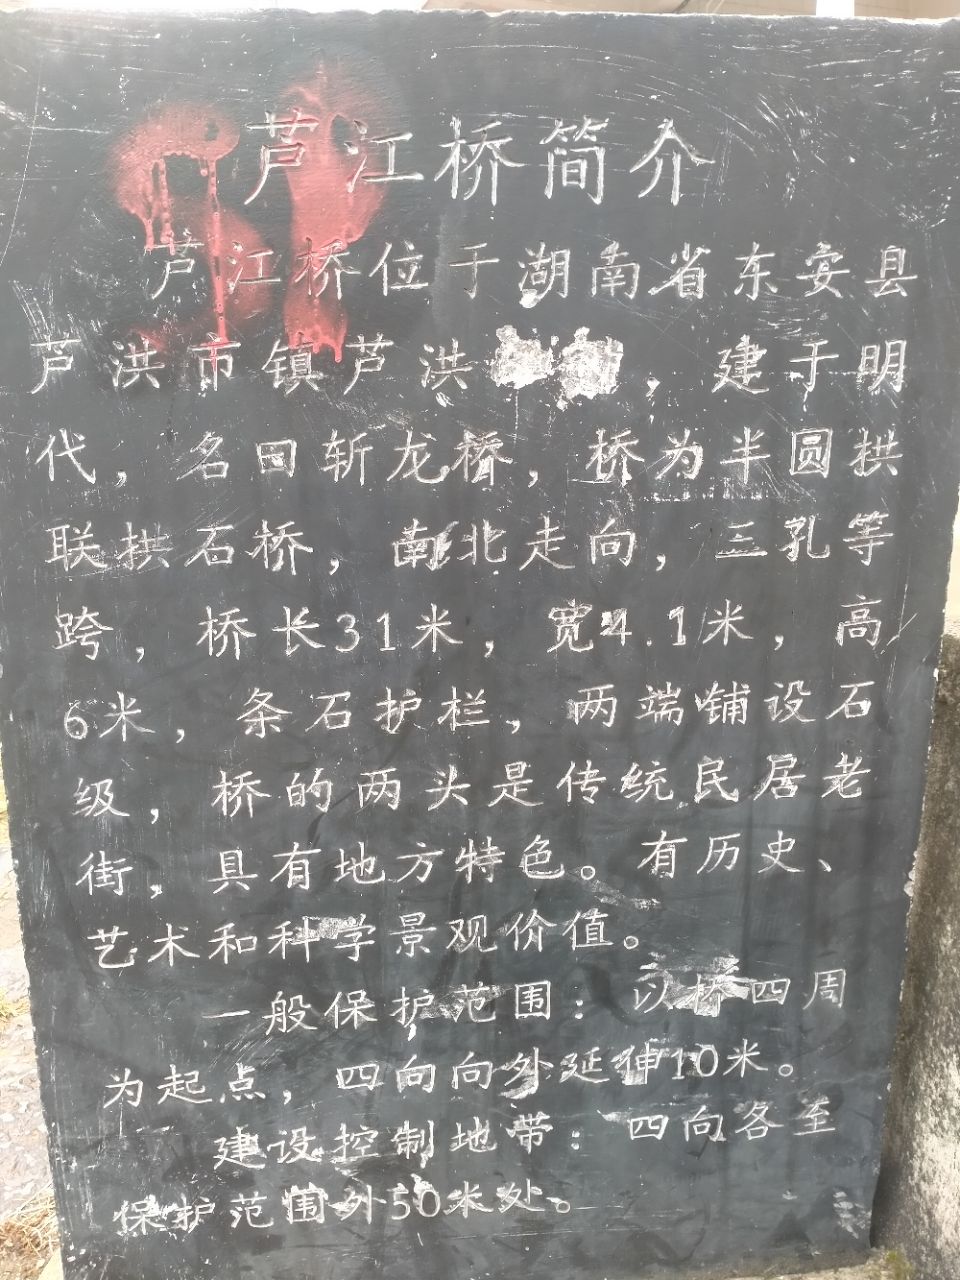 芦江桥简介
芦江桥位于湖南省东安县
芦洪市镇芦洪，建于明
代，名曰斩龙桥，桥为半圆拱
联拱石桥，南北走向，三孔等
跨，桥长31米，宽4.1米，高
6米，条石护栏，两端铺设石
级，桥的两头是传统民居老
街，具有地方特色。有历史、
艺术和科学景观价值。
一般保护范围：以桥四周
为起点，四向向外延伸10米。
建设控制地带：四向各至
保护范围外50米处。